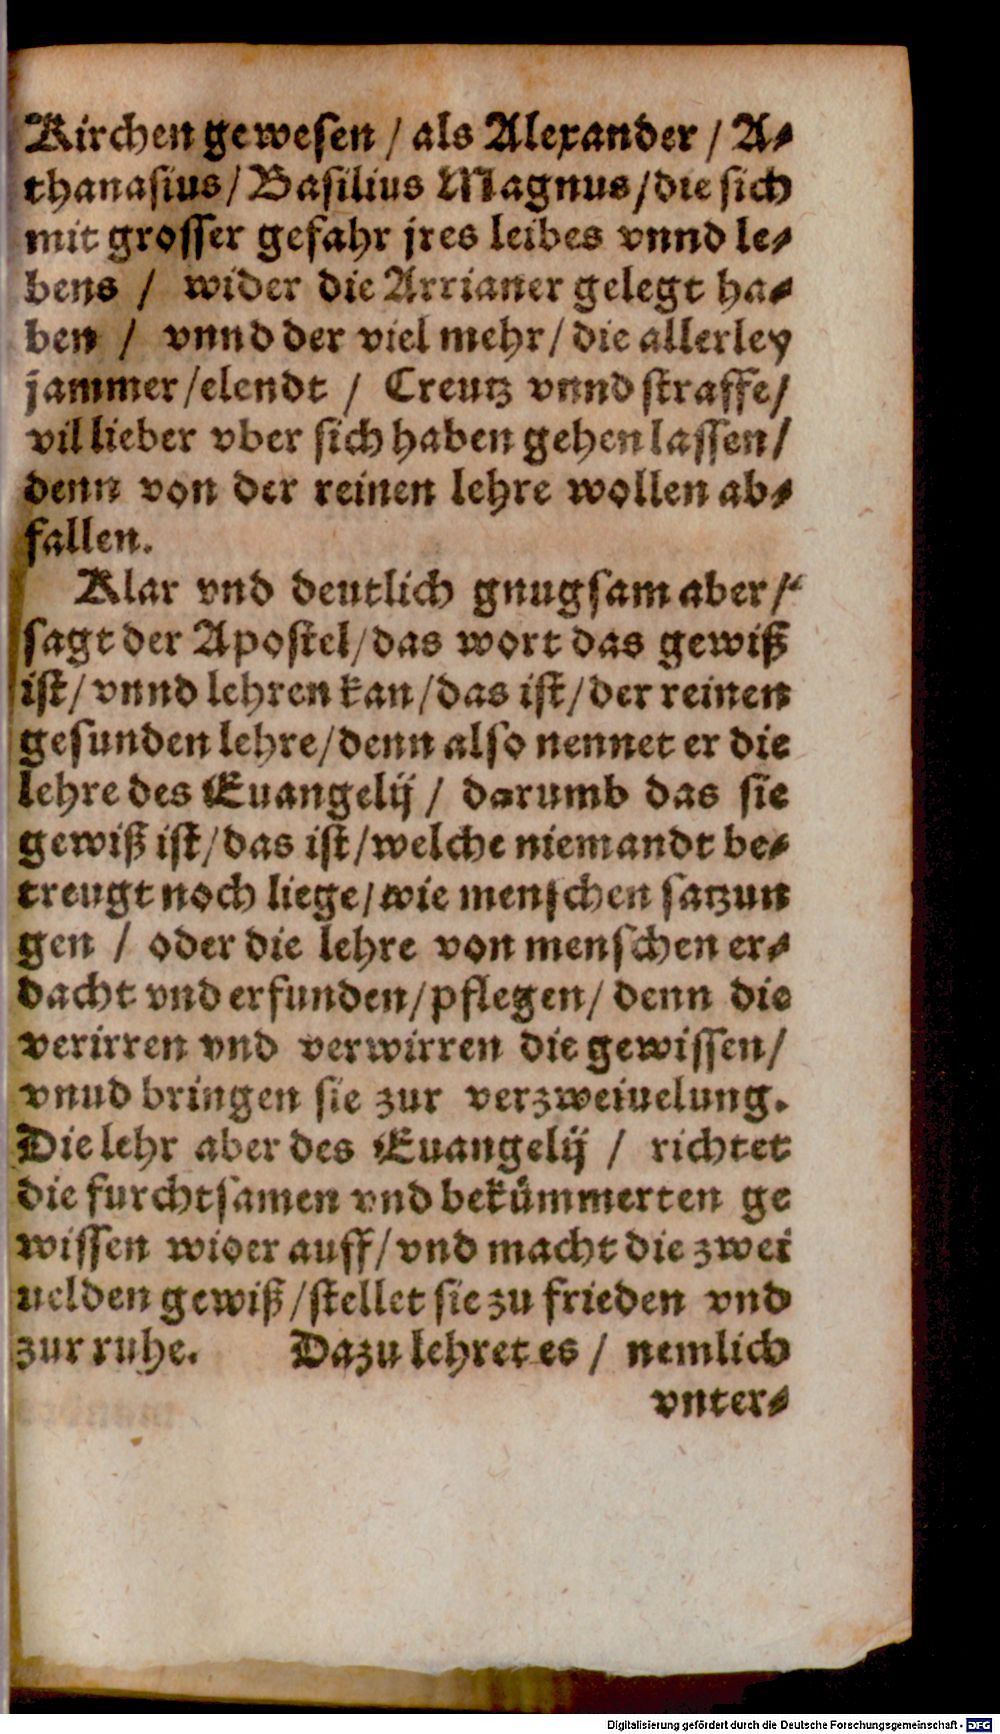 Kirchen gewesen / als Alexander / A⸗
thanasius / Basilius Magnus / die sich
mit grosser gefahr jres leibes vnnd le⸗
bens / wider die Arrianer gelegt ha⸗
ben / vnnd der viel mehr / die allerley
jammer / elendt / Creutz vnnd straffe /
vil lieber vber sich haben gehen lassen /
denn von der reinen lehre wollen ab⸗
fallen.
Klar vnd deutlich gnugsam aber /
sagt der Apostel / das wort das gewiß
ist / vnnd lehren kan / das ist / der reinen
gesunden lehre / denn also nennet er die
lehre des Euangelij / darumb das sie
gewiß ist / das ist / welche niemandt be⸗
treugt noch liege / wie menschen satzun
gen / oder die lehre von menschen er⸗
dacht vnd erfunden / pflegen / denn die
verirren vnd verwirren die gewissen /
vnud bringen sie zur verzweiuelung.
Die lehr aber des Euangelij / richtet
die furchtsamen vnd bekümmerten ge
wissen wider auff / vnd macht die zwei
uelden gewiß / stellet sie zu frieden vnd
zur ruhe. Dazu lehret es / nemlich
vnter⸗
Digitalisierung gefördert durch die Deutsche Forschungsgemeinschaft - DFG